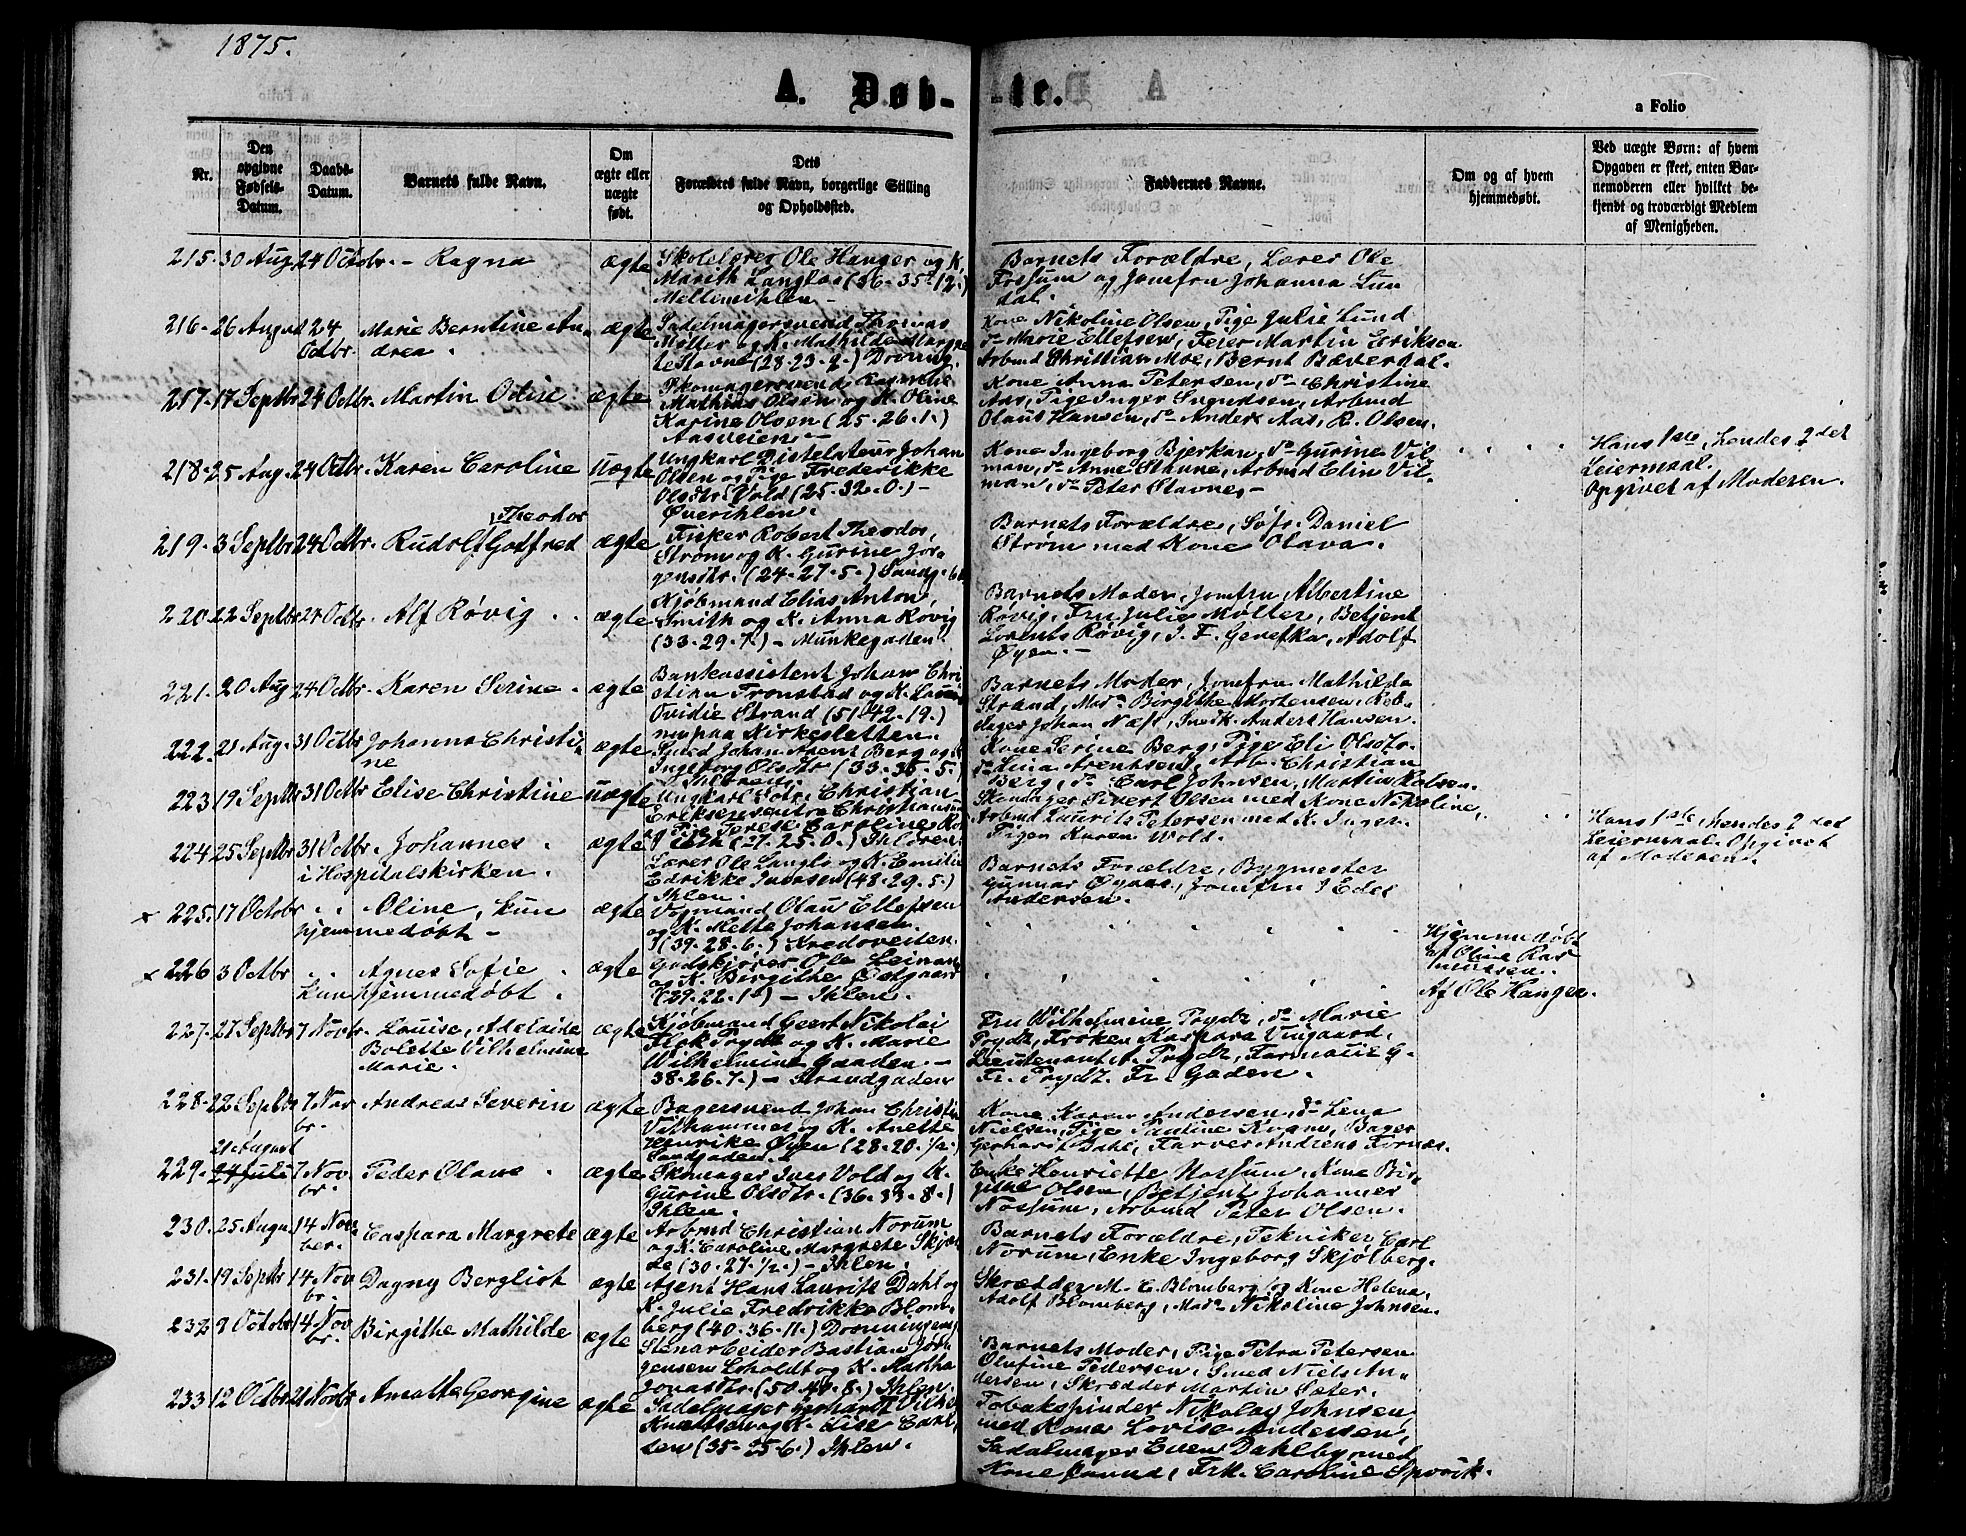 1875.
A. Døb-
te.
a Folio
Nr.
Den opgivne Fødsels-Datum.
Daabs-Datum.
Barnets fulde Navn.
Om ægte eller uægte født.
Dets Forældres fulde Navn, borgerlige Stilling og Opholdssted.
Faddernes Navne.
Om og af hvem hjemmedøbt.
Ved uægte Børn: af hvem Opgaven er skeet, enten Barnemoderen eller hvilket bekjendt og troværdigt Medlem af Menigheden.
215. 30 Aug. 24 Octbr. - Ragna ægte
Skolelærer Ole Hanger og K.
Marith Langlo (36-35-12.)
Mellemihlen -
Barnets Forældre, Lærer Ole
Fossum og Jomfru Johanna Lun
dal.
216- 26 August 24 Octbr. Marie Berntine An-
drea. ægte
Sadelmagersvend Thomas
Møller og K. Mathilde Margre
te Stavne (28-23-2.) Dronng.
Kone Nikoline Olsen, Pige Julie Lund
do Marie Ellefsen, Feier Martin Eriksen
Arbmd Christian Moe, Bernt Bæverdal.
217. 17 Septbr 24 Octbr. Martin Odise ægte
Skomagersvend Rasmus
Mathias Olsen og K. Oline
Karine Olsen (25-26-1.)
Aasveien -
Kone Anna Petersen, do Christine
Aas, Pige Inger Sugurdsen, Arbmd
Olaus Hansen, do Anders Aas, R. Olsen.
218- 25 Aug. 24 Octbr. Karen Caroline uægte
Ungkarl Distelateur Johan
Olsen og Pige Frederikke
Olsdtr. Vold (25-32-0.) -
Øverihlen.
Kone Ingeborg Bjerkan, do Gurine Vil-
man, do Anne Stavne, Arbmd Elin Vil-
man, do Peter Stavnes -
Hans 1ste, hendes 2det
Leiermaal.
Opgivet af Moderen.
219. 3 Septbr 24 Octbr. Rudolf Theodor Gotfred ægte
Fisker Robert Theodor
Strøm og K. Gurine Jør-
gensdtr. (24-27-5.) Sandg.
Barnets Forældre, Sofr. Daniel
Strøm med Kone Olava.
220- 22 Septbr 24 Octbr. Alf Røvig ægte
Kjøbmand Elias Anton
Smith og K. Anna Røvig
(33-29-7.) - Munkegaden.
Barnets Moder, Jomfru Albertine
Røvig, Fru Julie Møller, Betjent
Lorents Røvig, J. F. Adolf
Øyen. -
221. 20 Aug 24 Octbr. Karen Serine ægte
Bankassistent Johan Chri
stian Tronstad og K.
Ovidie Strand (51-42-19.)
Kirkesletten.
Barnets Moder, Jomfru Mathilde
Strand, Mad. Birgithe Mortensen, Reb-
slager Johan Næss, Snedk. Anders Hansen.
222. 21 Aug. 31 Octbr Johanna Christi-
ne ægte
Smed Johan Arent Berg og K.
Ingeborg Olsdtr (33-35-5.)
Ihleren.
Kone Serine Berg, Pige Eli Olsdtr.
do Lina Arentsen, Arb. Christian
Berg, do Carl Johnsen, Martin
223 19 Septbr 31 Octbr Elise Christine uægte
Ungkarl Sofr. Christian
Eriksen ventra Christiansund
og Pige Terese Caroline
(27. 25. 0.) Ihleren.
Skomager Sivert Olsen med Kone Nikoline,
Arbmd Laurits Petersen med K. Inger.
Pigen Karen Wold.
Hans 1ste, hendes 2det
Leiermaal. Opgivet
af Moderen.
224 25. Septbr 31 Octbr. Johannes. ægte
i Hospitalskirken.
Lærer Ole Langlo og K. Emilie
Edrikke Ivarsen (48-29-5.)
Ihlen.
Barnets Forældre, Bygmester
Gunnar Øyaas, Jomfru J Edel
Andersen.
x 225. 17 Octobr Oline, kun
hjemmedøbt - ægte
Vognmand Olaus Ellefsen
og K. Mette Johansen.
(39-28-6.) Kredsveiten.
Hjemmedøbt
af Oline Ras
mussen.
x 226 3 Octbr Agnes Sofie
kun hjemmedøbt. ægte
Godskjører Ole Leinan
og K. Birgithe Østgaard
(29-22-1.) - Ihlen.
Af Ole Hanger.
227. 27 Septbr 7 Novbr. Louise Adelaide
Bolette Vilhelmine
Marie. ægte
Kjøbmand Geert Nikolai
Flok Prydz og K. Marie
Wilhelmine Gaaden -
38-26-7.) - Strandgaden
Fru Wilhelmine Prydz, do Marie
Prydz, Frøken Kaspara Vingaard,
Lieutenant A. Prydz, Farmaceut G.
Fr. Prydz. Fr. Gaden.
228- 22 Septbr 7 Nov
br. Andreas Severin ægte
Bagersvend Johan Christi
Vilhammer og K. Anette
Henrikke Øyen (28-20-½.)
Sandgaden.
Kone Karen Andersen, do Lena
Nielsen, Pige Pauline Kvam, Bager
Gerhart Dahl, Farver Andreas Fornæs.
21 August
229. 24 Juli 7 Nov
br. Peder Olaus. ægte
Skomager Iver Vold og K.
Gurine Olsdtr. (36-33-8.)
Ihlen.
Enke Henriette Mossum, Kone Bir-
githe Olsen, Betjent Johannes
Nossum, Arbmd Peter Olsen.
230. 25. Augu. 14 Nov-
ber. Caspara Margrete ægte
Arbmd Christian Norum
og K. Caroline Margrete
(30-27-½.) - Ihlen.
Barnets Forældre, Tekniker Carl
Norum, Enke Ingeborg Skjølberg.
231. 19 Septbr 14 Nov
br. Dagny Bergliot ægte
Agent Hans Laurits Dahl og
K. Julie Fredrikke Blom-
berg (40-36-11.) Dronningens
Skrædder M. E. Blomberg og Kone Helena,
Adolf Blomberg, Mad. Nikoline Johnsen.
232 9 Octobr 14 Nov
br. Birgithe Mathilde ægte
Stenarbeider Bastian Jør-
gensen Loholdt og K. Martha
Jonasdtr. (50-40-8.) Ihlen.
Barnets Moder, Pige Petra Petersen
Olufine Pedersen, Smed Niels An-
dersen, Skrædder Martin Sæter.
233 12 Octbr 21 Novbr. Amalia Georgine ægte
Sadelmager Gerhardt Vilhe
Knudtsen og K. Lise Carl
sen (35-25-6.) Ihlen.
Tobakspinder Nikolay Johnsen
med Kone Lovise Andersen,
Sadelmager Even Dahlby med
Kone Frk. Caroline Spørck.